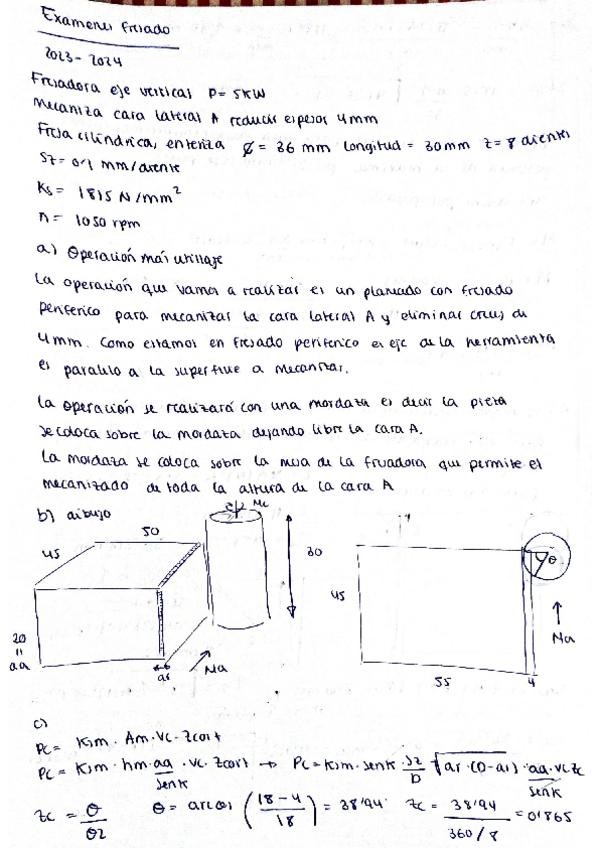 Examenes fresado
2023-2024
Fresadora eje vertical P= 5kW
Mecaniza cara lateral A reducir espesor 4mm
Fresa cilindrica, enteriza ∅ = 36 mm longitud = 30mm z = 8 dientes
Sz= 0'1 mm/diente
Ks= 1815 N/mm²
n= 1050 rpm
a) Operación más utillaje
La operación que vamos a realizar es un planeado con fresado
periferico para mecanizar la cara lateral A y eliminar creces de
4mm. Como estamos en fresado periferico el eje de la herramienta
es paralelo a la superficie a mecanizar.
La operación se realizará con una mordaza es decir la pieza
se coloca sobre la mordaza dejando libre la cara A.
La mordaza se coloca sobre la mesa de la fresadora que permite el
mecanizado de toda la altura de la cara A
b) dibujo
Mc
50
45
30
20
=
aa
ar
Ma
45
θ
Ma
55
4
c)
Pc = Ksm · Am · Vc · Zcort
Pc = Ksm · hm · aa/senk · Vc · Zcort → Pc = Ksm · senk · Sz/D √ar · (D-ar) · aa/senk · Vc Zc
Zc = θ/θz θ = arccos (18-4/18) = 38'94 Zc = 38'94/360/8 = 0'865